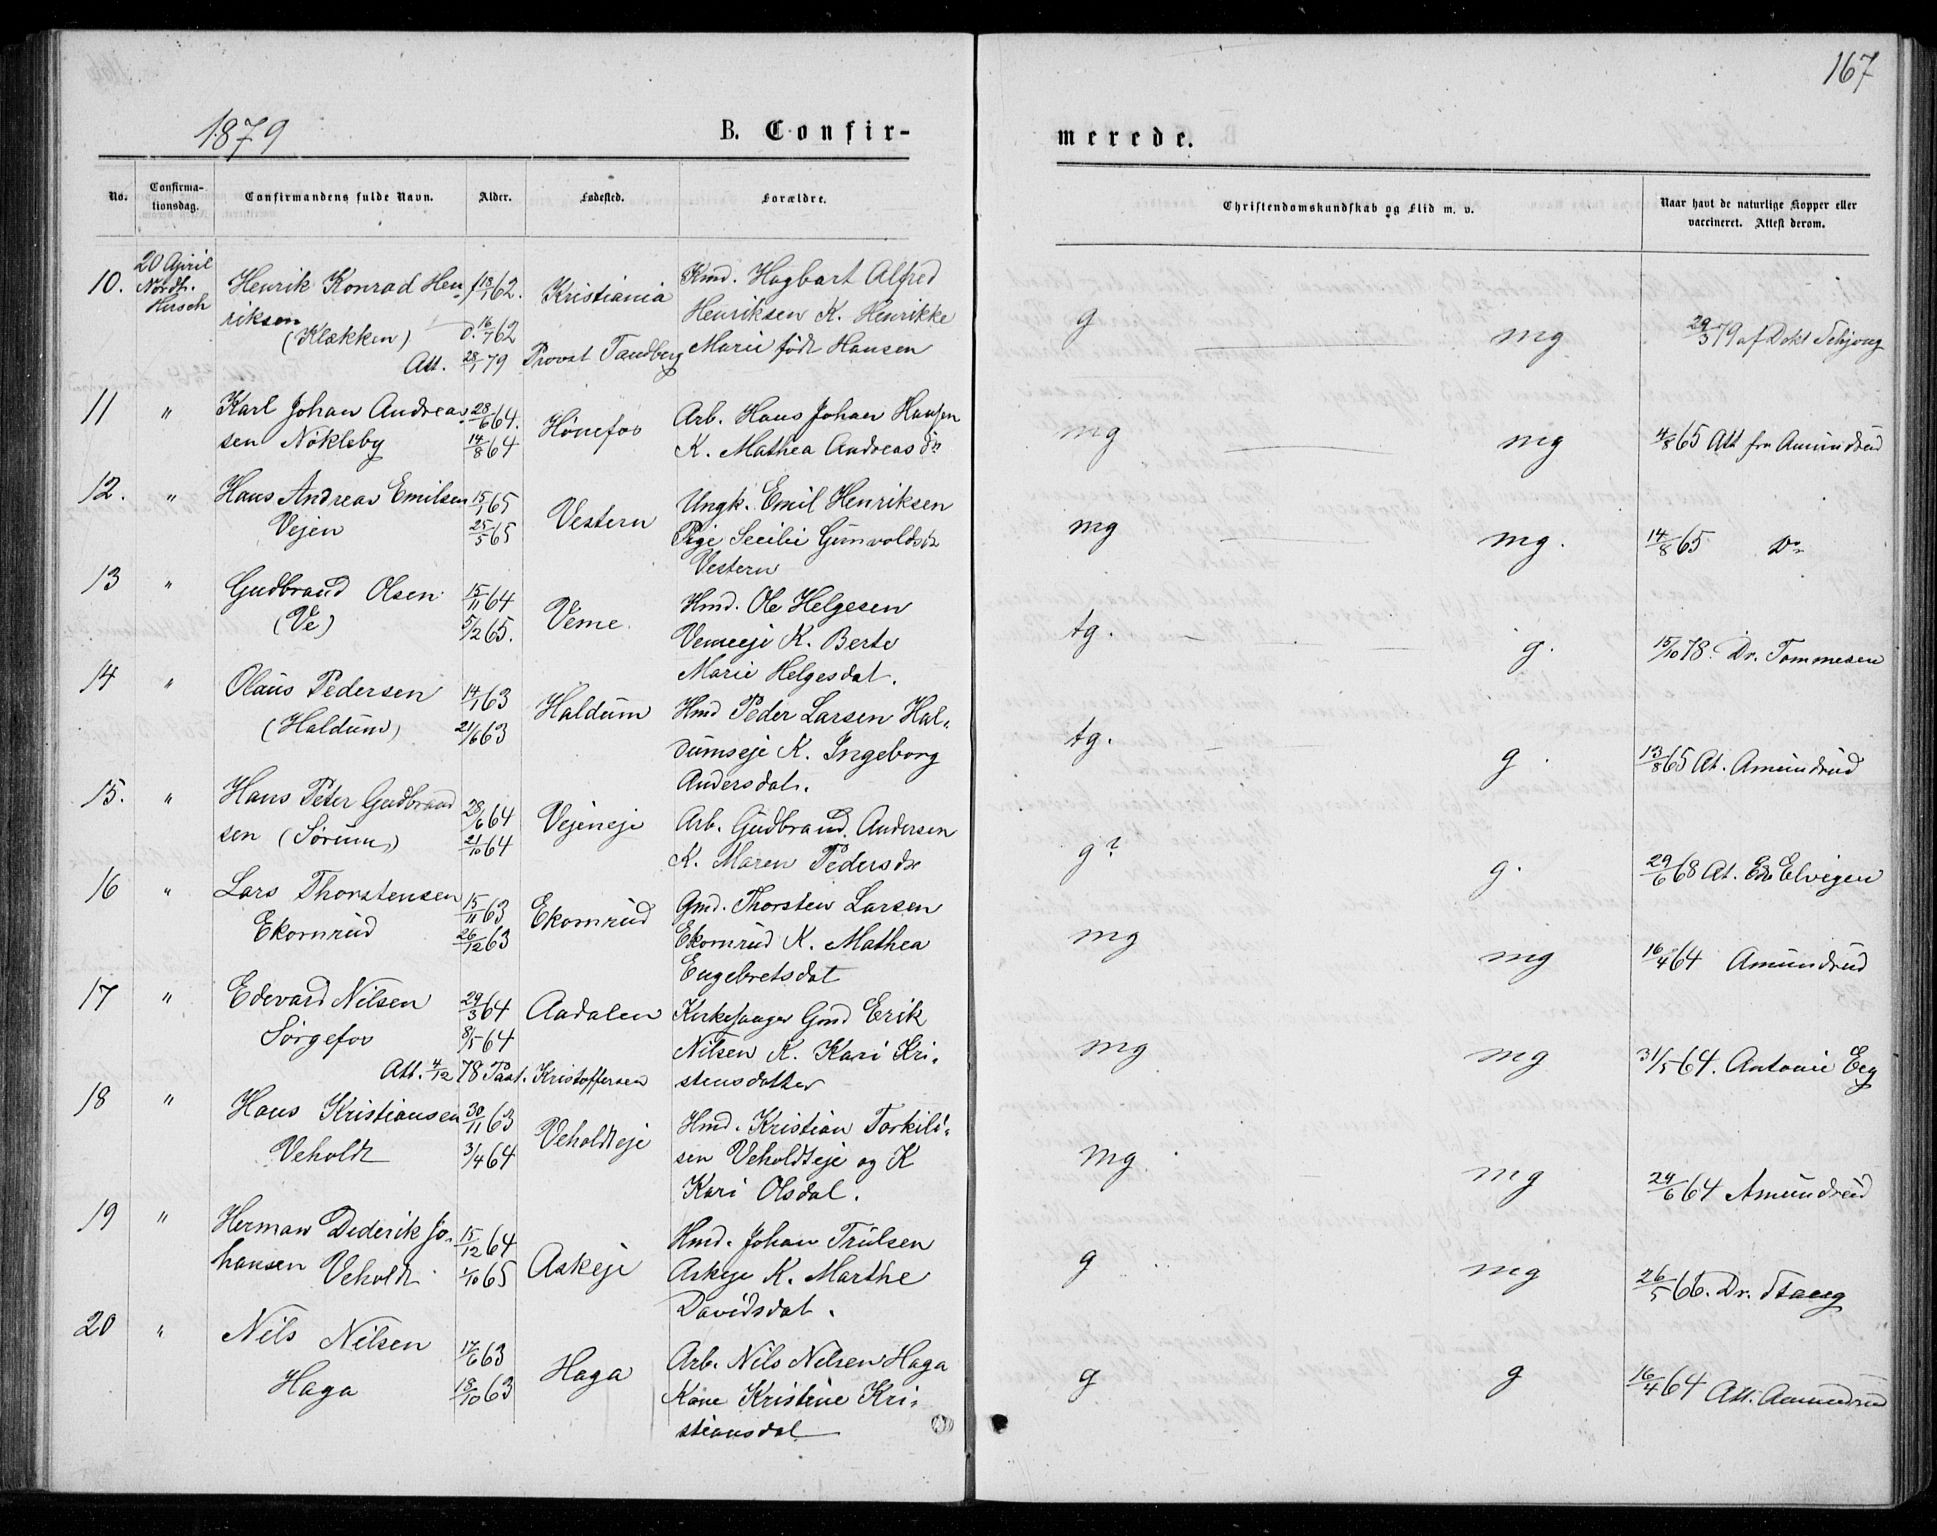 167
1879
B. Confir-
merede.
No.
Confirma-
tionsdag.
Confirmandens fulde Navn.
Alder.
Fødested.
Forældre.
Christendomskundskab og Flid m. v.
Naar havt de naturlige Kopper eller
vaccineret. Attest derom.
10.
20 April
Nordh.
Henrik Konrad Hen-
riksen
(Klækken)
f 18/1 62.
d. 16/7 62
Att. 28/1 79 Provst Tandberg
Kristiania
Kmd. Hagbart Alfred
Henriksen K. Henrikke
Marie født Hansen
g
mg
29/3 79 af Dokt
11
"
Karl Johan Andrea-
sen Nökleby
28/6 64.
14/8 64
Hönefos
Arb. Hans Johan Hansen
K. Mathea Andreasdr
mg
mg
4/8 65 Att fra Amundrud
12.
"
Hans Andreas Emilsen
Vejen
15/1 65
25/5 65
Vestern
Ungk. Emil Henriksen
Pige Secilie Gunvoldsdr
Vestern
mg
mg.
14/8 65 Do
13
"
Gudbrand Olsen
(Ve)
15/11 64
5/2 65.
Veme
Hmd. Ole Helgesen
Vemeeje K. Berte
Marie Helgesdat.
tg.
g.
15/10 78. Dr. Tommesen
14
"
Olaus Pedersen
(Haldum)
14/1 63
21/6 63
Haldum
Hmd Peder Larsen Hal-
dumseje K. Ingeborg
Andersdat.
tg.
g.
13/8 65 At. Amundrud
15.
"
Hans Peter Gudbrand
sen (Sørum)
28/6 64
21/10 64
Vejeneje
Arb. Gudbrand Andersen
K. Maren Pedersdr
g?
g.
29/6 68 At. Elvigen
16
"
Lars Thorstensen
Ekornrud
15/11 63
26/12 63
Ekornrud
Gmd. Thorsten Larsen
Ekornrud K. Mathea
Engebretsdat
mg
mg
16/4 64 Amundrud
17
"
Edevard Nilsen
Sørgefos
29/3 64
8/5 64
Att. 4/12 78 Past. Kristoffersen
Aadalen
Kirkesanger Gmd Erik
Nilsen K. Kari Kri-
stensdatter
mg
mg
31/5 64. Antonie Eeg
18
"
Hans Kristiansen
Veholdt
30/11 63
3/4 64
Veholdteje
Hmd. Kristian Torkild-
sen Veholdteje og K
Kari Olsdat.
mg
mg
29/6 64 Amundrud
19
"
Herman Dederik Jo-
hansen Veholdt
15/12 64
1/10 65
Askeje
Hmd. Johan Trulsen
Askeje K. Marthe
Davidsdat.
g
mg
26/5 66. Dr. Stang
20
"
Nils Nilsen
Haga
17/6 63
18/10 63
Haga
Arb. Nils Nilsen Haga
Kone Kristine Kri-
stiansdat
g
g
16/4 64 Att. Amundrud